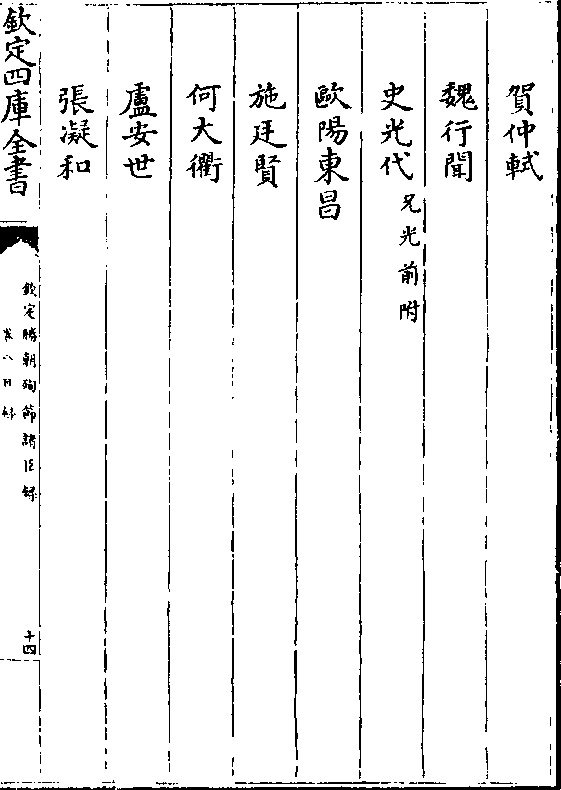 賀仲軾
魏行聞
史光代 兄光前附
歐陽東昌
施廷賢
何大衢
盧安世
張凝和
欽定四庫全書
欽定勝朝殉節諸臣錄
卷八目錄
十四